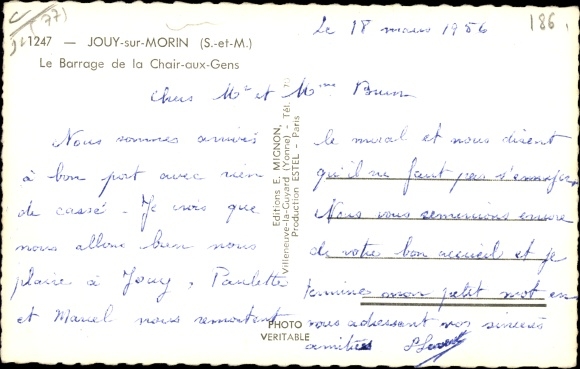 (77)
1247 — JOUY-sur-MORIN (S.-et-M.)
Le Barrage de la Chair-aux-Gens
186
Le 18 mars 1956
Chers Mr et Mme Brun
Nous sommes arrivés
à bon port avec rien
de cassé. Je crois que
nous allons bien nous
plaire à Jouy, Paulette
et Marcel nous remontent
le moral et nous disent
qu'il ne faut pas s'ennuyer
Nous vous remercions encore
de votre bon accueil et je
termine mon petit mot en
vous adressant nos sincères
amitiés
Editions E. MIGNON,
Villeneuve-la-Guyard (Yonne) - Tél. 70
Production ESTEL - Paris
PHOTO
VERITABLE